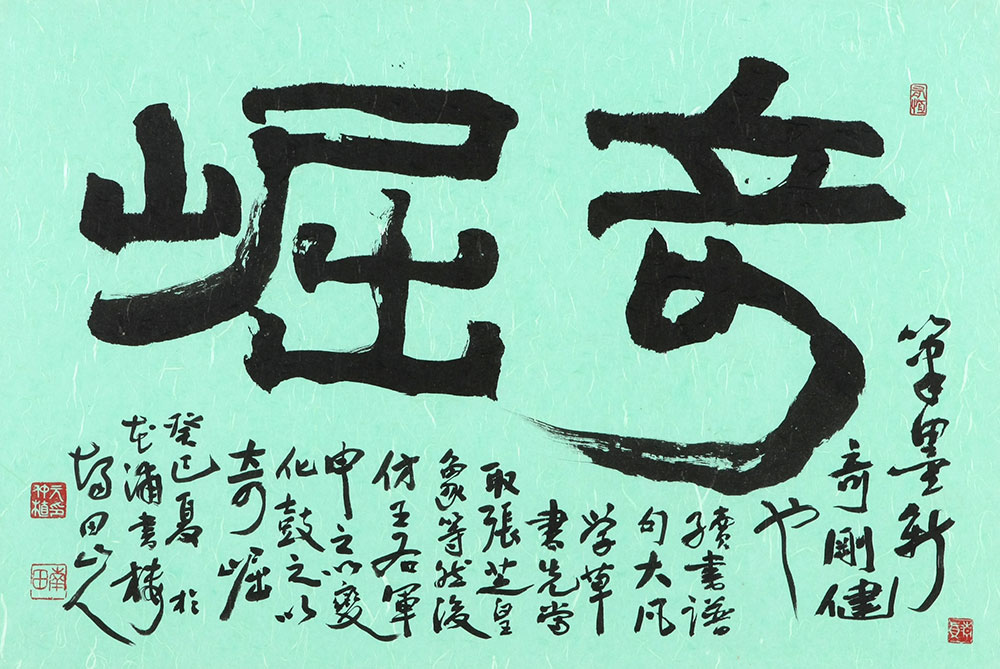 奇崛
筆墨新
奇剛健
也
續書譜
句大凡
学草
書先當
取張芝皇
象等然後
仿王右軍
申之以變
化鼓之以
奇崛
癸巳夏於
浦書樓
田山人
南田